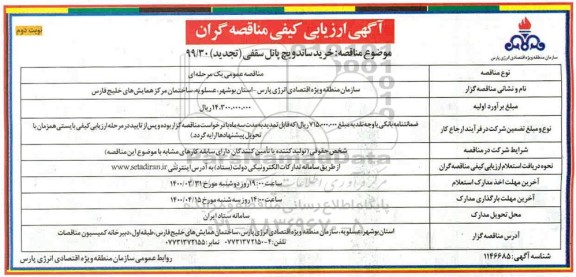 آگهی ارزیابی کیفی مناقصه گران
نوبت دوم
موضوع مناقصه: خرید ساندویچ پانل سقفی (تجدید) ۹۹/۳۰
سازمان منطقه ویژه اقتصادی انرژی پارس
نوع مناقصه
مناقصه عمومی یک مرحله‌ای
نام و نشانی مناقصه گزار
سازمان منطقه ویژه اقتصادی انرژی پارس - استان بوشهر، عسلویه، ساختمان مرکز همایش‌های خلیج فارس
مبلغ برآورد اولیه
۱۴,۳۰۰,۰۰۰,۰۰۰ ریال
نوع و مبلغ تضمین شرکت در فرآیند ارجاع کار
ضمانتنامه بانکی یا وجه نقد به مبلغ ۷۱۵,۰۰۰,۰۰۰ ریال (که قابل تمدید به مدت سه ماه با درخواست مناقصه گزار بوده و پس از تایید در مرحله ارزیابی کیفی بایستی همزمان با
تحویل پیشنهادها ارایه گردد)
شرایط شرکت در مناقصه
شخص حقوقی (تولید کننده یا تأمین کنندگان دارای سابقه کارهای مشابه با موضوع این مناقصه)
نحوه دریافت استعلام ارزیابی کیفی مناقصه گران
از طریق سامانه تدارکات الکترونیکی دولت (ستاد) به آدرس اینترنتی www.setadiran.ir
آخرین مهلت اخذ مدارک استعلام
ساعت ۱۹:۰۰ روز دوشنبه مورخ ۱۴۰۰/۰۳/۳۱
آخرین مهلت بارگذاری مدارک
ساعت ۱۴:۰۰ روز سه شنبه مورخ ۱۴۰۰/۰۴/۱۵
محل تحویل مدارک
سامانه ستاد ایران
آدرس مناقصه گزار
استان بوشهر، عسلویه، سازمان منطقه ویژه اقتصادی انرژی پارس، ساختمان همایش‌های خلیج فارس، طبقه اول، دبیرخانه کمیسیون مناقصات
تلفن: ۴-۰۷۷۳۱۳۷۲۱۵۰ نمابر: ۰۷۷۳۱۳۷۲۱۵۵
شناسه آگهی: ۱۱۴۶۶۸۵
روابط عمومی سازمان منطقه ویژه اقتصادی انرژی پارس